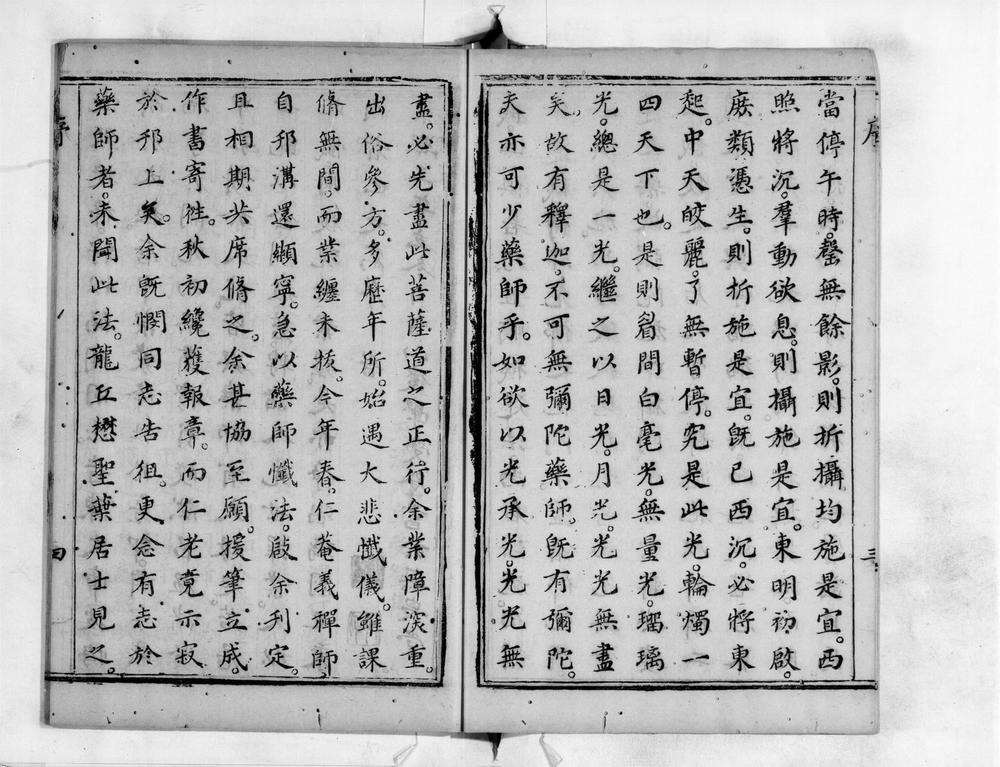 序
三
當停午時。罄無餘影。則折攝均施是宜。西
照將沉。羣動欲息。則攝施是宜。東明初啟。
庶類憑生。則折施是宜。旣已西沉。必將東
起。中天皎麗。了無暫停。究是此光。輪燭一
四天下也。是則眉間白毫光。無量光。瑠璃
光。總是一光。繼之以日光。月光。光光無盡
矣。故有釋迦。不可無彌陀藥師。旣有彌陀。
夫亦可少藥師乎。如欲以光承光。光光無
盡。必先盡此菩薩道之正行。余業障深重。
出俗參方。多歷年所。始遇大悲懺儀。雖課
脩無間。而業纏未拔。今年春。仁菴義禪師。
自邗溝還顓寧。急以藥師懺法。啟余刋定。
且相期共席脩之。余甚協至願。援筆立成。
作書寄徃。秋初纔獲報章。而仁老竟示寂
於邗上矣。余旣憫同志告徂。更念有志於
藥師者。未聞此法。龍丘懋聖葉居士見之。
序
四